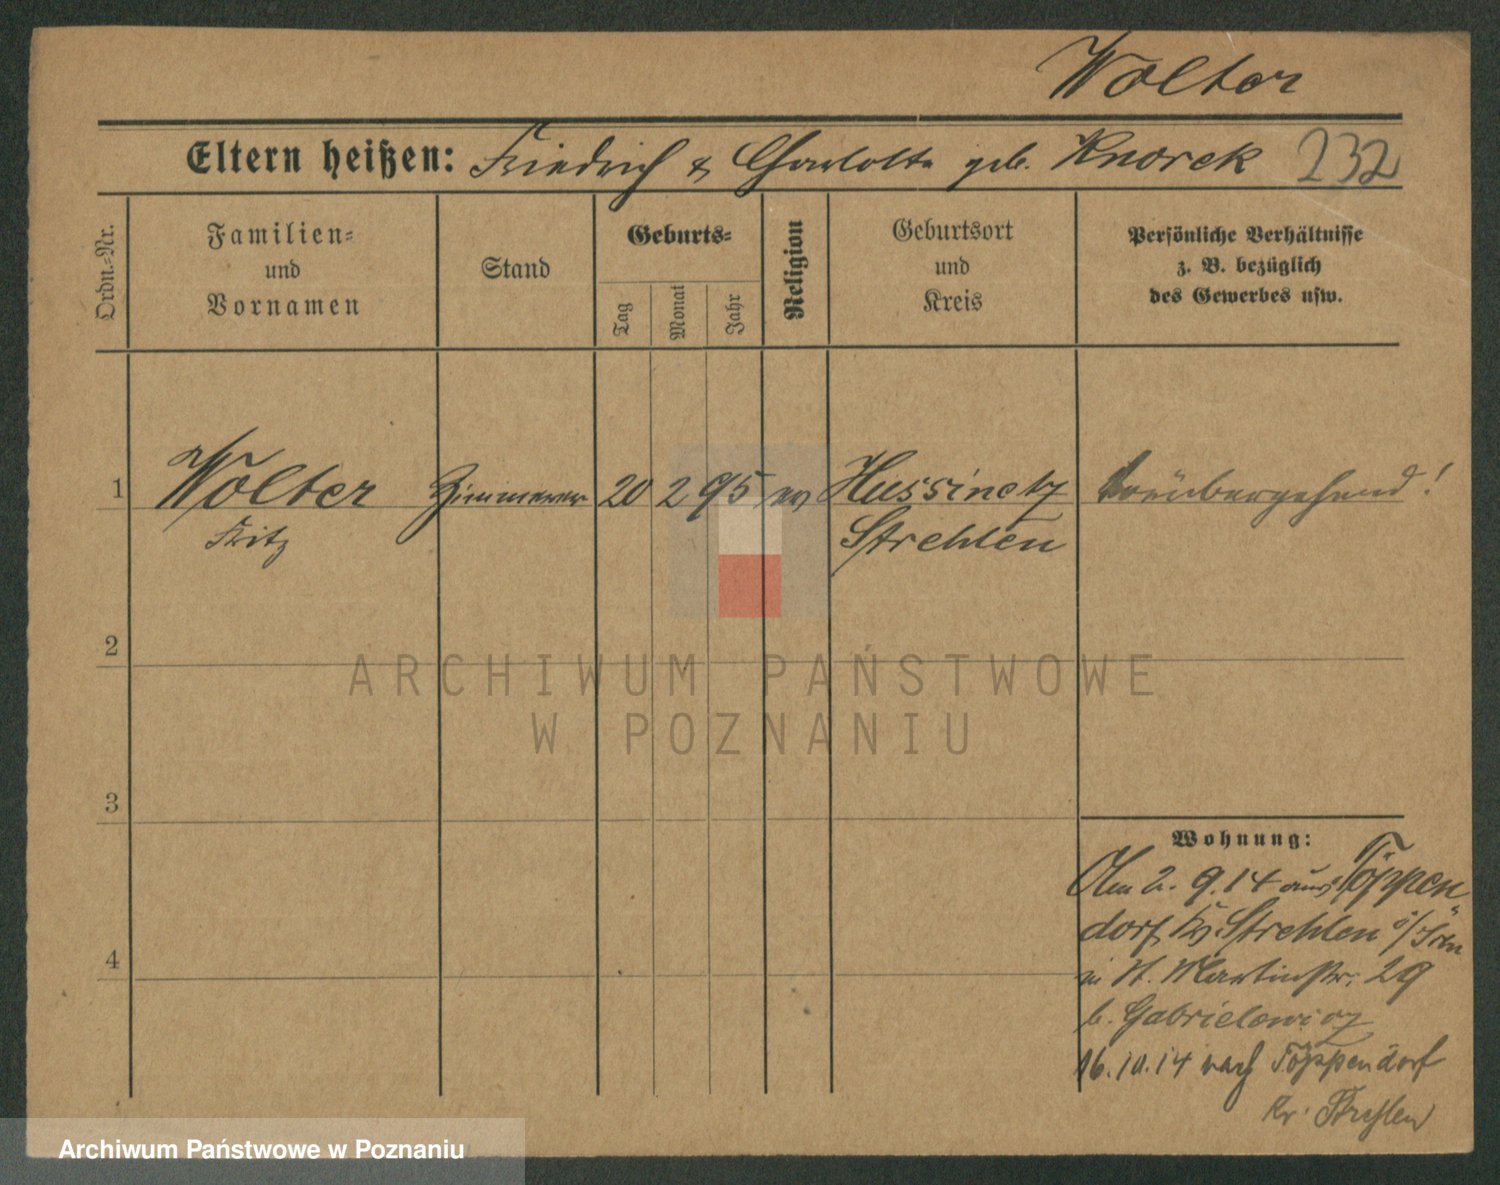 Wolter
Eltern heißen: Friedrich & Charlotte geb. Knorek 232
Ordn.-Nr.
Familien-
und
Vornamen
Stand
Geburts-
Tag
Monat
Jahr
Religion
Geburtsort
und
Kreis
Persönliche Verhältnisse
z. B. bezüglich
des Gewerbes usw.
1 Wolter Zimmerer 20 2 95 ev Hussinetz vorübergehend!
Fritz Strehlen
2
ARCHIWUM PAŃSTWOWE
W POZNANIU
3
Wohnung:
Am 2. 9. 14 aus Töppen
dorf Kr Strehlen
4
in St. Martinstr. 29
b. Gabrielowicz
16.10.14 nach Töppendorf
Kr. Strehlen
Archiwum Państwowe w Poznaniu